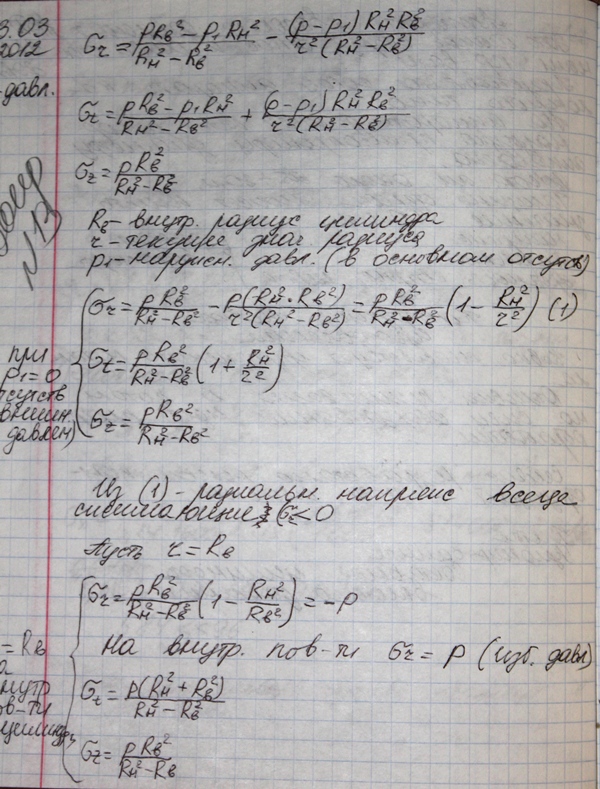 3.03
2012
давл.
σr = (pRв² − p₁Rн²)/(Rн² − Rв²) − ((p − p₁)Rн²Rв²)/(r²(Rн² − Rв²))
σt = (pRв² − p₁Rн²)/(Rн² − Rв²) + ((p − p₁)Rн²Rв²)/(r²(Rн² − Rв²))
σz = pRв²/(Rн² − Rв²)
N13
Rв – внутр. радиус цилиндра
r – текущее знач радиуса
p₁ – наружн. давл. (в основном отсутств)
при
p₁=0
отсутств
внешн.
давлен)
σr = pRв²/(Rн² − Rв²) − p(Rн²·Rв²)/(r²(Rн² − Rв²)) = pRв²/(Rн² − Rв²) (1 − Rн²/r²) (1)
σt = pRв²/(Rн² − Rв²) (1 + Rн²/r²)
σz = pRв²/(Rн² − Rв²)
Из (1) – радиальн. напряж всегда
сжимающие σr<0
Пусть r = Rв
σr = pRв²/(Rн² − Rв²) (1 − Rн²/Rв²) = −p
На внутр. пов-ти σr = p (изб. давл)
= Rв
на
внутр
пов-ти
цилиндр
σt = p(Rн² + Rв²)/(Rн² − Rв²)
σz = pRв²/(Rн² − Rв)